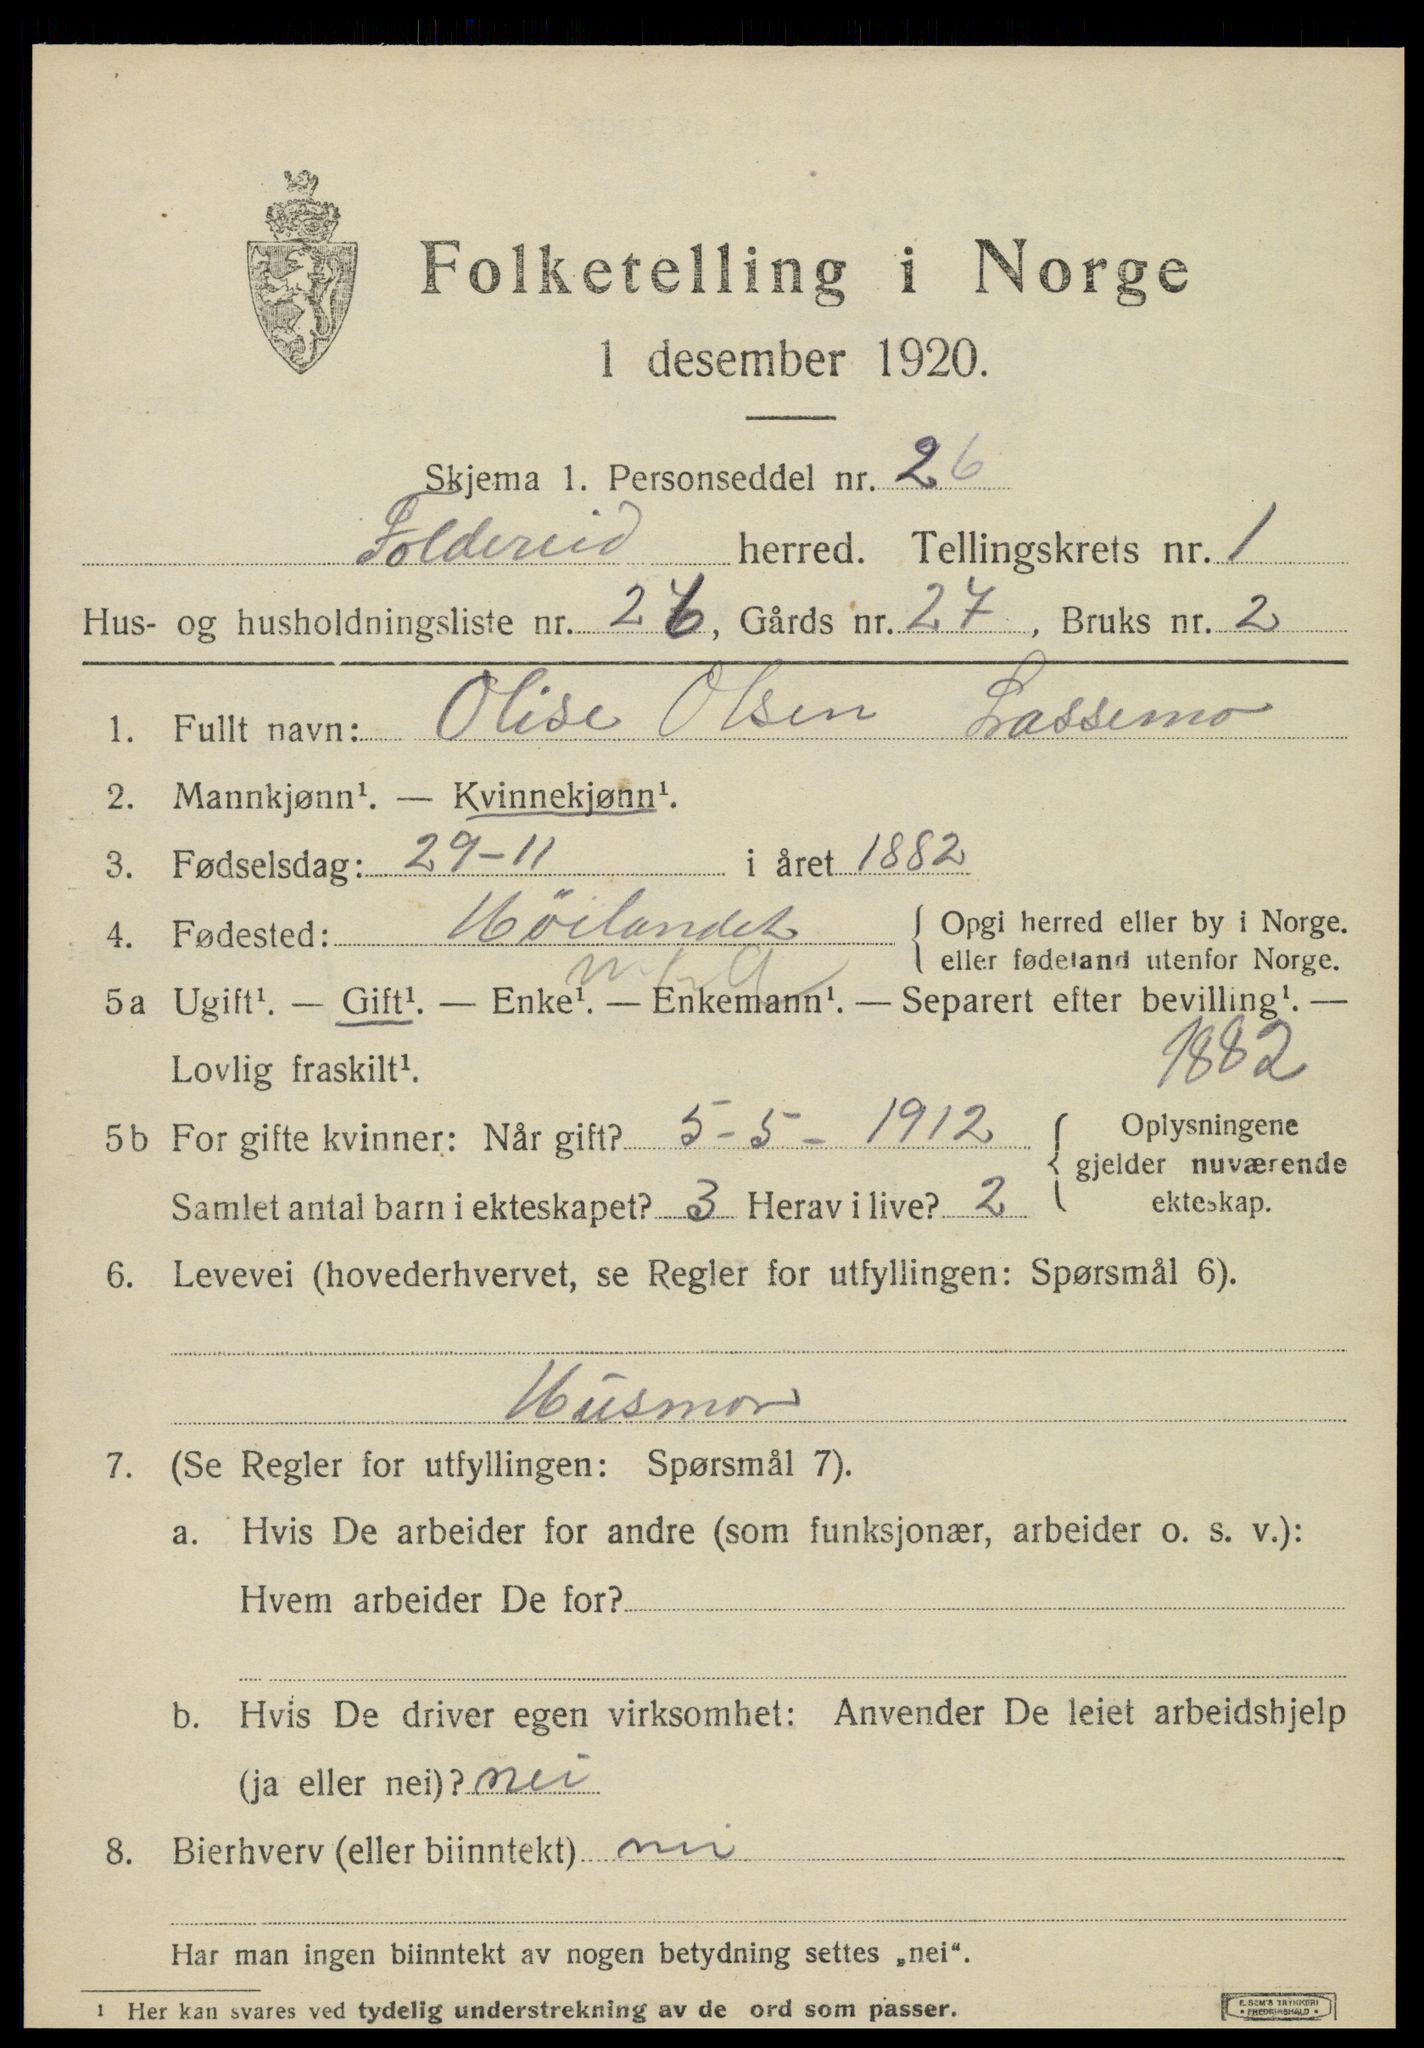 Folketelling i Norge
1 desember 1920.
Skjema 1. Personseddel nr. 26
Foldereid herred. Tellingskrets nr. 1
Hus- og husholdningsliste nr. 26, Gårds nr. 27, Bruks nr. 2
1. Fullt navn: Olise Olsen Lassemo
2. Mannkjønn¹. — Kvinnekjønn¹.
3. Fødselsdag: 29-11 i året 1882
4. Fødested: Höilandet { Opgi herred eller by i Norge.
eller fødeland utenfor Norge.
5a Ugift¹. — Gift¹. — Enke¹. — Enkemann¹. — Separert efter bevilling¹. —
Lovlig fraskilt¹. 1882
5b For gifte kvinner: Når gift? 5-5-1912 { Oplysningene
gjelder nuværende
Samlet antal barn i ekteskapet? 3 Herav i live? 2 ekteskap.
6. Levevei (hovederhvervet, se Regler for utfyllingen: Spørsmål 6).
Husmor
7. (Se Regler for utfyllingen: Spørsmål 7).
a. Hvis De arbeider for andre (som funksjonær, arbeider o. s. v.):
Hvem arbeider De for?
b. Hvis De driver egen virksomhet: Anvender De leiet arbeidshjelp
(ja eller nei)? nei
8. Bierhverv (eller biinntekt) nei
Har man ingen biinntekt av nogen betydning settes „nei“.
¹ Her kan svares ved tydelig understrekning av de ord som passer.
E. SEM'S TRYKKERI
• FREDRIKSHALD •